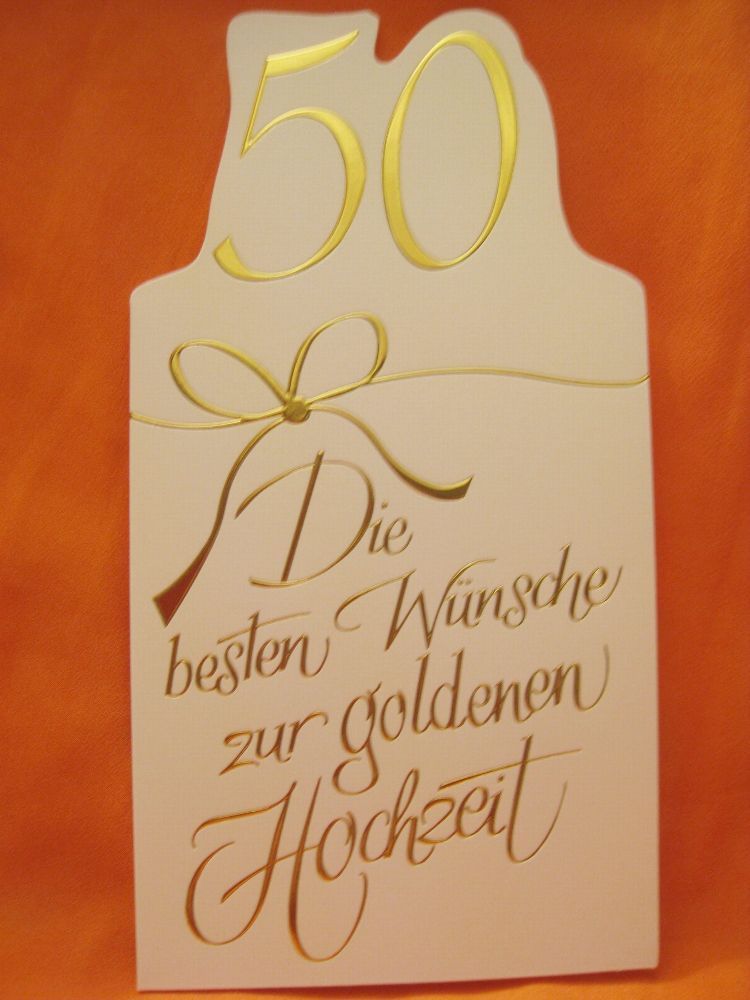 50
Die
besten Wünsche
zur goldenen
Hochzeit